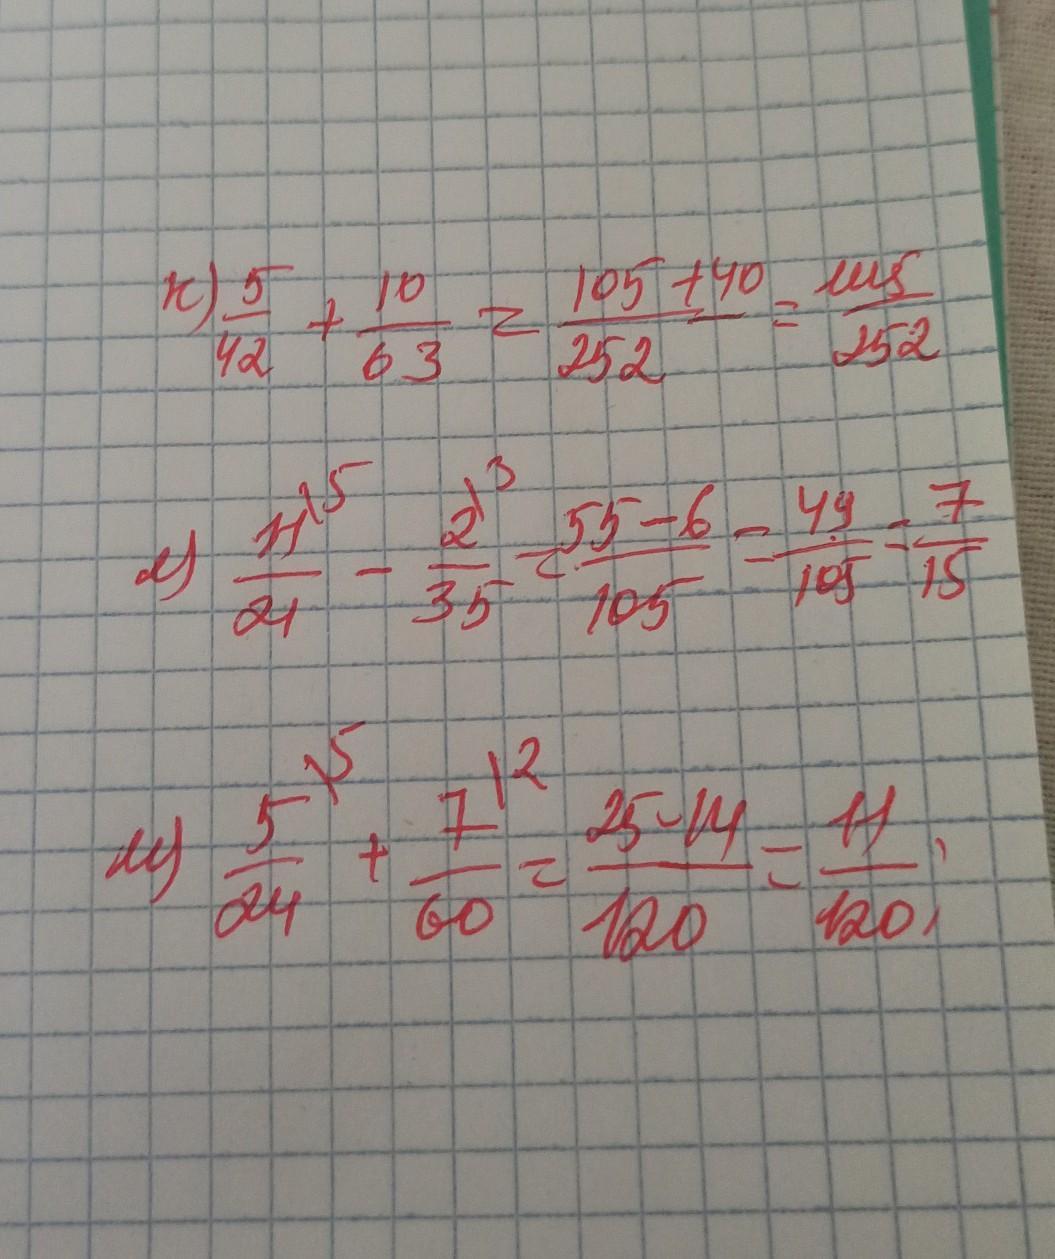 к) 5/42 + 10/63 = 105+40/252 = 145/252
л) 11\5/21 - 2\3/35 = 55-6/105 = 49/105 = 7/15
м) 5\5/24 + 7\2/60 = 25-14/120 = 11/120;